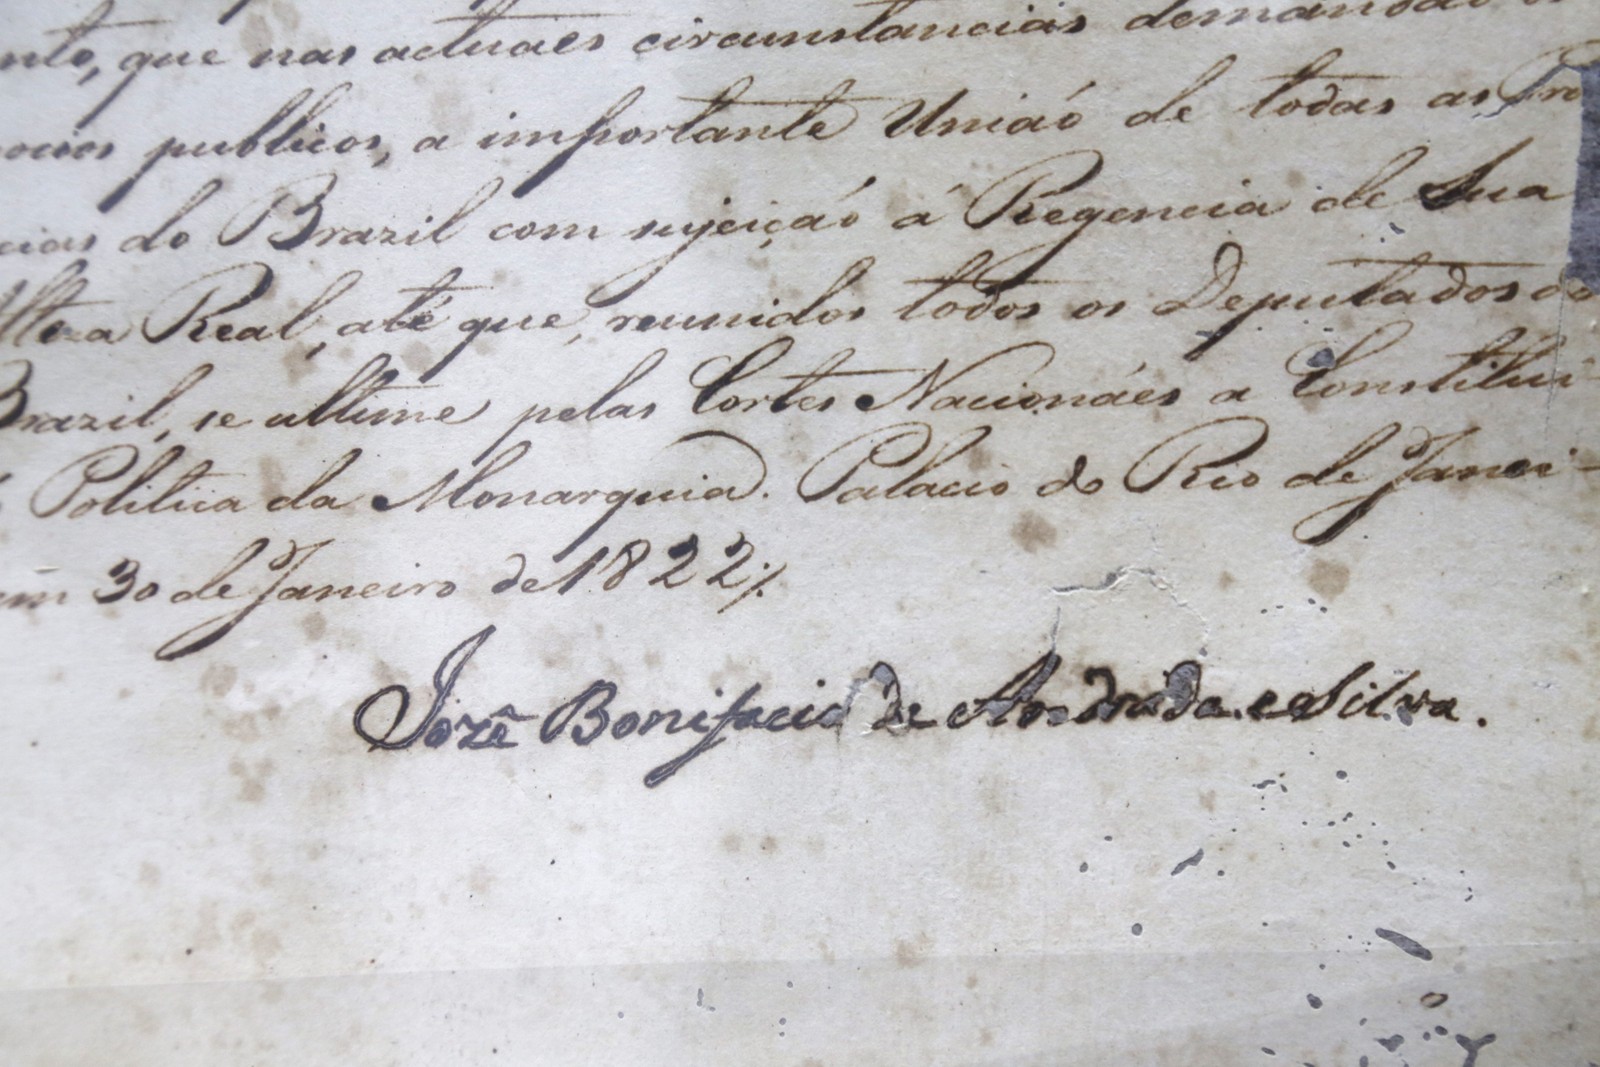 nto, que nas actuaes circunstancias demandão o
ocios publicos, a importante União de todas as Pro
cias do Brazil com sujeição á Regencia de Sua
Alteza Real, até que, reunidos todos os Deputados do
Brazil, se ultime pelas Cortes Nacionáes a Constitui-
Politica da Monarquia. Palacio do Rio de Janei-
em 30 de Janeiro de 1822 ./.
Jozê Bonifacio de Andrada e Silva.